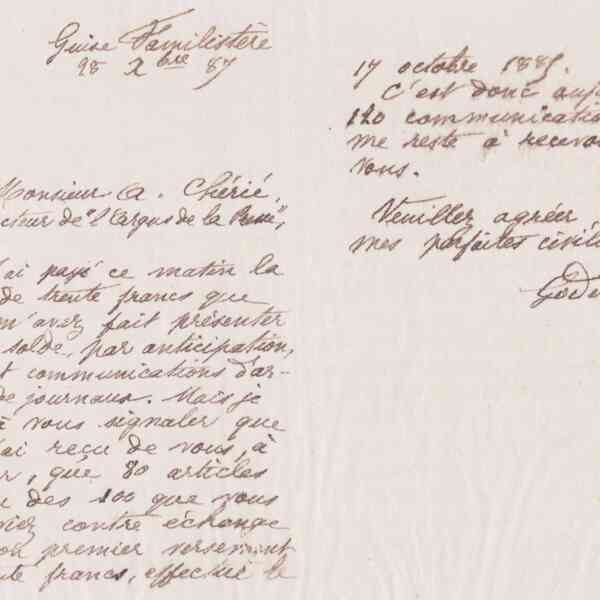 Guise Familistère
28 Xbre 87
Monsieur A. Chérié,
cteur de "l'Argus de la Presse",
ai payé ce matin la
de trente francs que
m'avez fait présenter
solde, par anticipation,
t communications d'ar-
de journaux. Mais je
à vous signaler que
ai reçu de vous, à
r, que 80 articles
u des 100 que vous
viez contre échange
on premier versement
te francs, effectué le
17 octobre 1885.
C'est donc aujo
120 communicatio
me reste à recevo
vous.
Veuillez agréer
mes parfaites civili
Godi